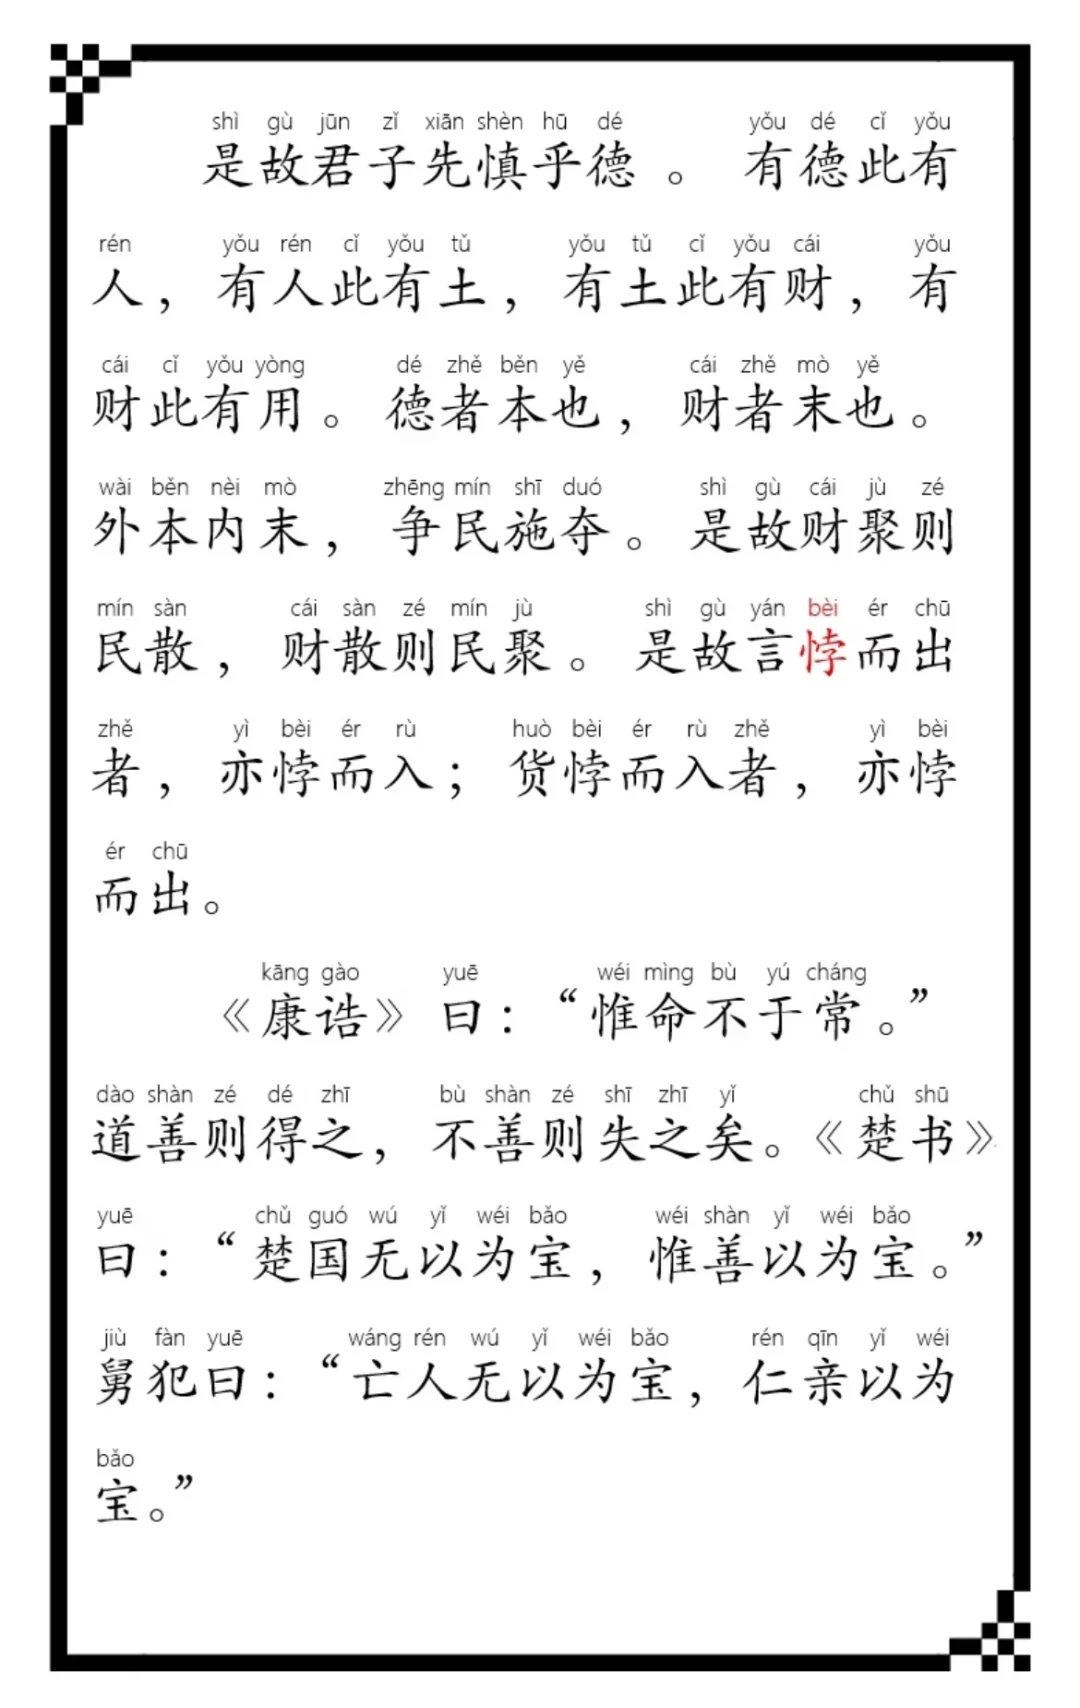 shì gù jūn zǐ xiān shèn hū dé yǒu dé cǐ yǒu
是故君子先慎乎德。有德此有
rén yǒu rén cǐ yǒu tǔ yǒu tǔ cǐ yǒu cái yǒu
人，有人此有土，有土此有财，有
cái cǐ yǒu yòng dé zhě běn yě cái zhě mò yě
财此有用。德者本也，财者末也。
wài běn nèi mò zhēng mín shī duó shì gù cái jù zé
外本内末，争民施夺。是故财聚则
mín sàn cái sàn zé mín jù shì gù yán bèi ér chū
民散，财散则民聚。是故言悖而出
zhě yì bèi ér rù huò bèi ér rù zhě yì bèi
者，亦悖而入；货悖而入者，亦悖
ér chū
而出。
kāng gào yuē wéi mìng bù yú cháng
《康诰》曰：“惟命不于常。”
dào shàn zé dé zhī bù shàn zé shī zhī yǐ chǔ shū
道善则得之，不善则失之矣。《楚书》
yuē chǔ guó wú yǐ wéi bǎo wéi shàn yǐ wéi bǎo
曰：“楚国无以为宝，惟善以为宝。”
jiù fàn yuē wáng rén wú yǐ wéi bǎo rén qīn yǐ wéi
舅犯曰：“亡人无以为宝，仁亲以为
bǎo
宝。”